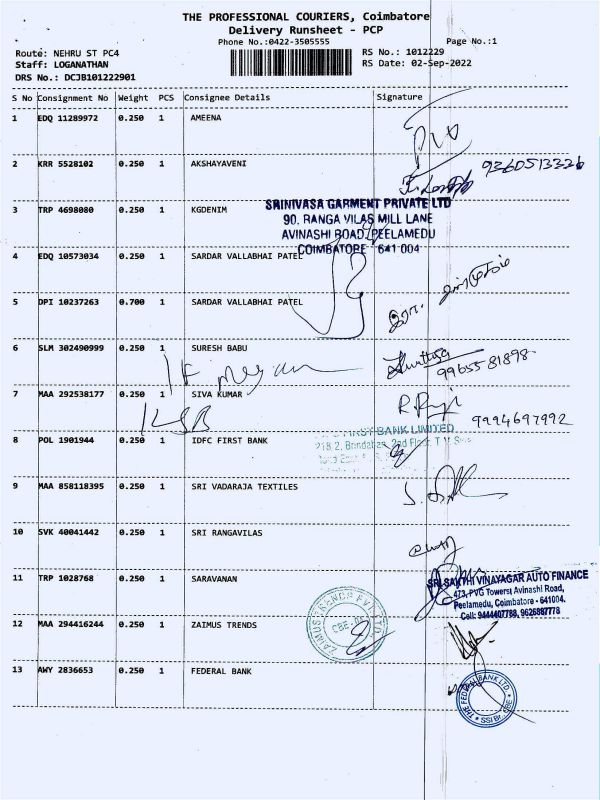 THE PROFESSIONAL COURIERS, Coimbatore
Delivery Runsheet - PCP
Phone No.:0422-3505555
Page No.:1
Route: NEHRU ST PC4
RS No.: 1012229
Staff: LOGANATHAN
RS Date: 02-Sep-2022
DRS No.: DCJB101222901
S No Consignment No Weight PCS Consignee Details Signature
1 EDQ 11289972 0.250 1 AMEENA
2 KRR 5528102 0.250 1 AKSHAYAVENI
9360513326
3 TRP 4698080 0.250 1 KGDENIM
SRINIVASA GARMENT PRIVATE LTD
90, RANGA VILAS MILL LANE
AVINASHI ROAD, PEELAMEDU
COIMBATORE 641 004
4 EDQ 10573034 0.250 1 SARDAR VALLABHAI PATEL
5 DPI 10237263 0.700 1 SARDAR VALLABHAI PATEL
6 SLM 302490999 0.250 1 SURESH BABU
99655 81898
7 MAA 292538177 0.250 1 SIVA KUMAR
9994697992
FIRST BANK LIMITED
8 POL 1901944 0.250 1 IDFC FIRST BANK
2nd Floor
9 MAA 858118395 0.250 1 SRI VADARAJA TEXTILES
10 SVK 40041442 0.250 1 SRI RANGAVILAS
11 TRP 1028768 0.250 1 SARAVANAN
SRI SAKTHI VINAYAGAR AUTO FINANCE
473, PVG Towers, Avinashi Road,
Peelamedu, Coimbatore - 641004.
Cell: 9444407789, 9626887778
12 MAA 294416244 0.250 1 ZAIMUS TRENDS
ZAIMUS TRENDS
13 AWY 2836653 0.250 1 FEDERAL BANK
THE FEDERAL BANK LTD